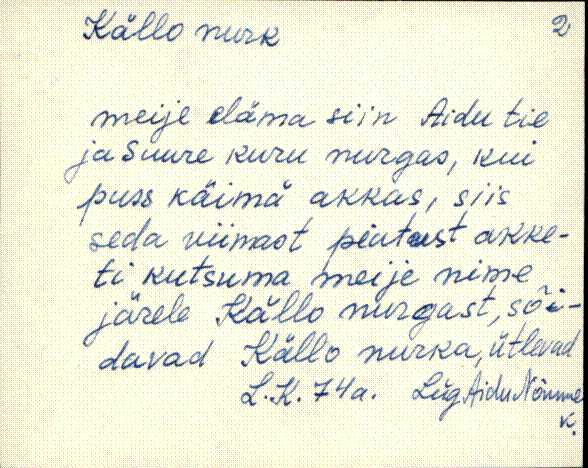 Källo nurk 2
meije eläma siin Aidu tie
ja Suure kuru nurgas, kui
puss käimä akkas, siis
seda viimast piatust akke-
ti kutsuma meije nime
järele Källo nurgast, sõi-
davad Källo nurka, ütlevad
L.K. 74a. Lüg Aidu Nõmme
k.